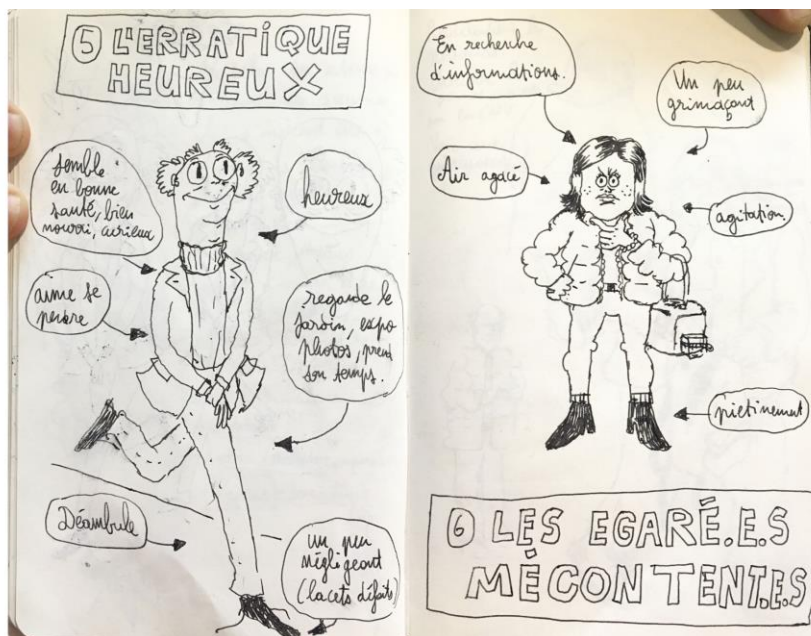 ⑤ L'ERRATIQUE
HEUREUX
semble
en bonne
santé, bien
nourri, curieux
heureux
aime se
perdre
regarde le
jardin, expo
photos, prend
son temps.
Déambule
un peu
négligeant
(lacets défaits)
En recherche
d'informations.
Un peu
grimaçant
Air agacé
agitation
piétinement
⑥ LES EGARÉ.E.S
MÉCONTENT.E.S